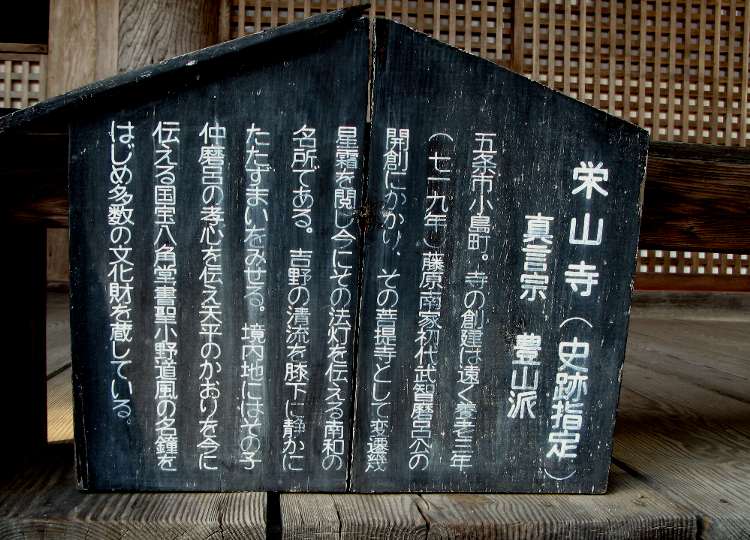 栄山寺（史跡指定）
真言宗　豊山派
五条市小島町。寺の創建は遠く養老三年
（七一九年）藤原南家初代武智麿呂公の
開創にかかり、その菩提寺として変遷幾
星霜を閲し今にその法灯を伝える南和の
名所である。吉野の清流を膝下に静かに
たたずまいをみせる。境内地にはその子
仲麿呂の孝心を伝え天平のかおりを今に
伝える国宝八角堂書聖小野道風の名鐘を
はじめ多数の文化財を蔵している。